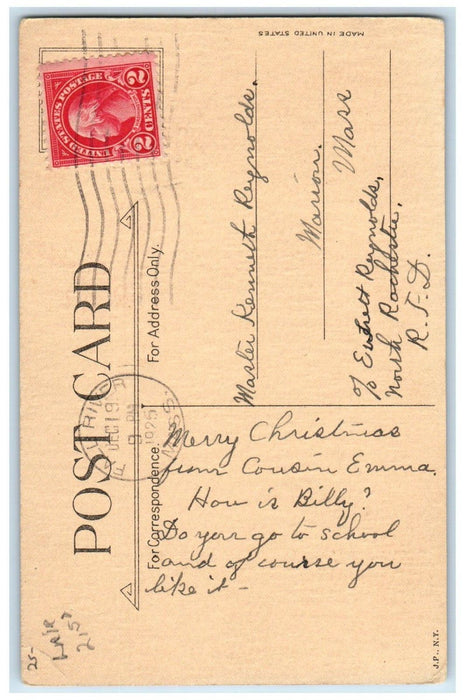 MADE IN UNITED STATES
UNITED STATES POSTAGE
2 CENTS 2
POST CARD
For Address Only.
For Correspondence.
DEC 19
9 PM
1925
MASS.
Master Kenneth Reynolds.
Marion.
Mass
% Everett Reynolds,
North Rochester.
R. F. D.
Merry Christmas
from Cousin Emma.
How is Billy?
Do you go to school
and of course you
like it -
25-
J.P., N.Y.